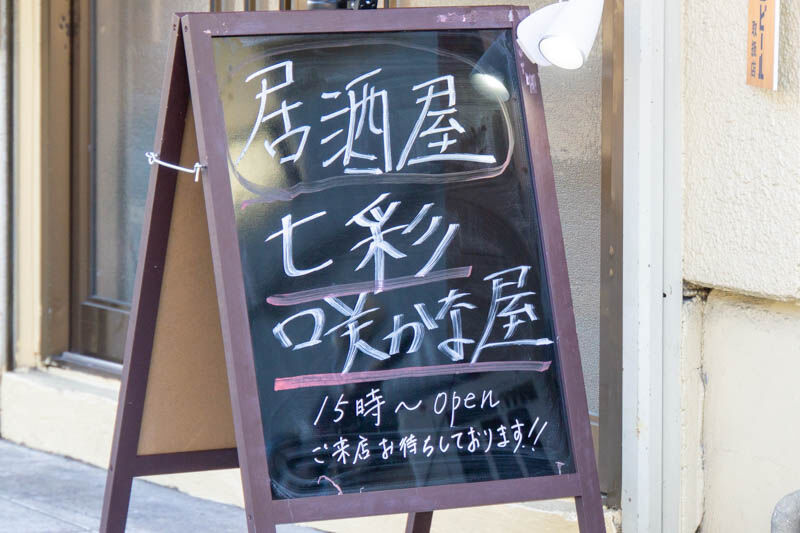 居酒屋
七彩
咲かな屋
15時～open
ご来店お待ちしております!!